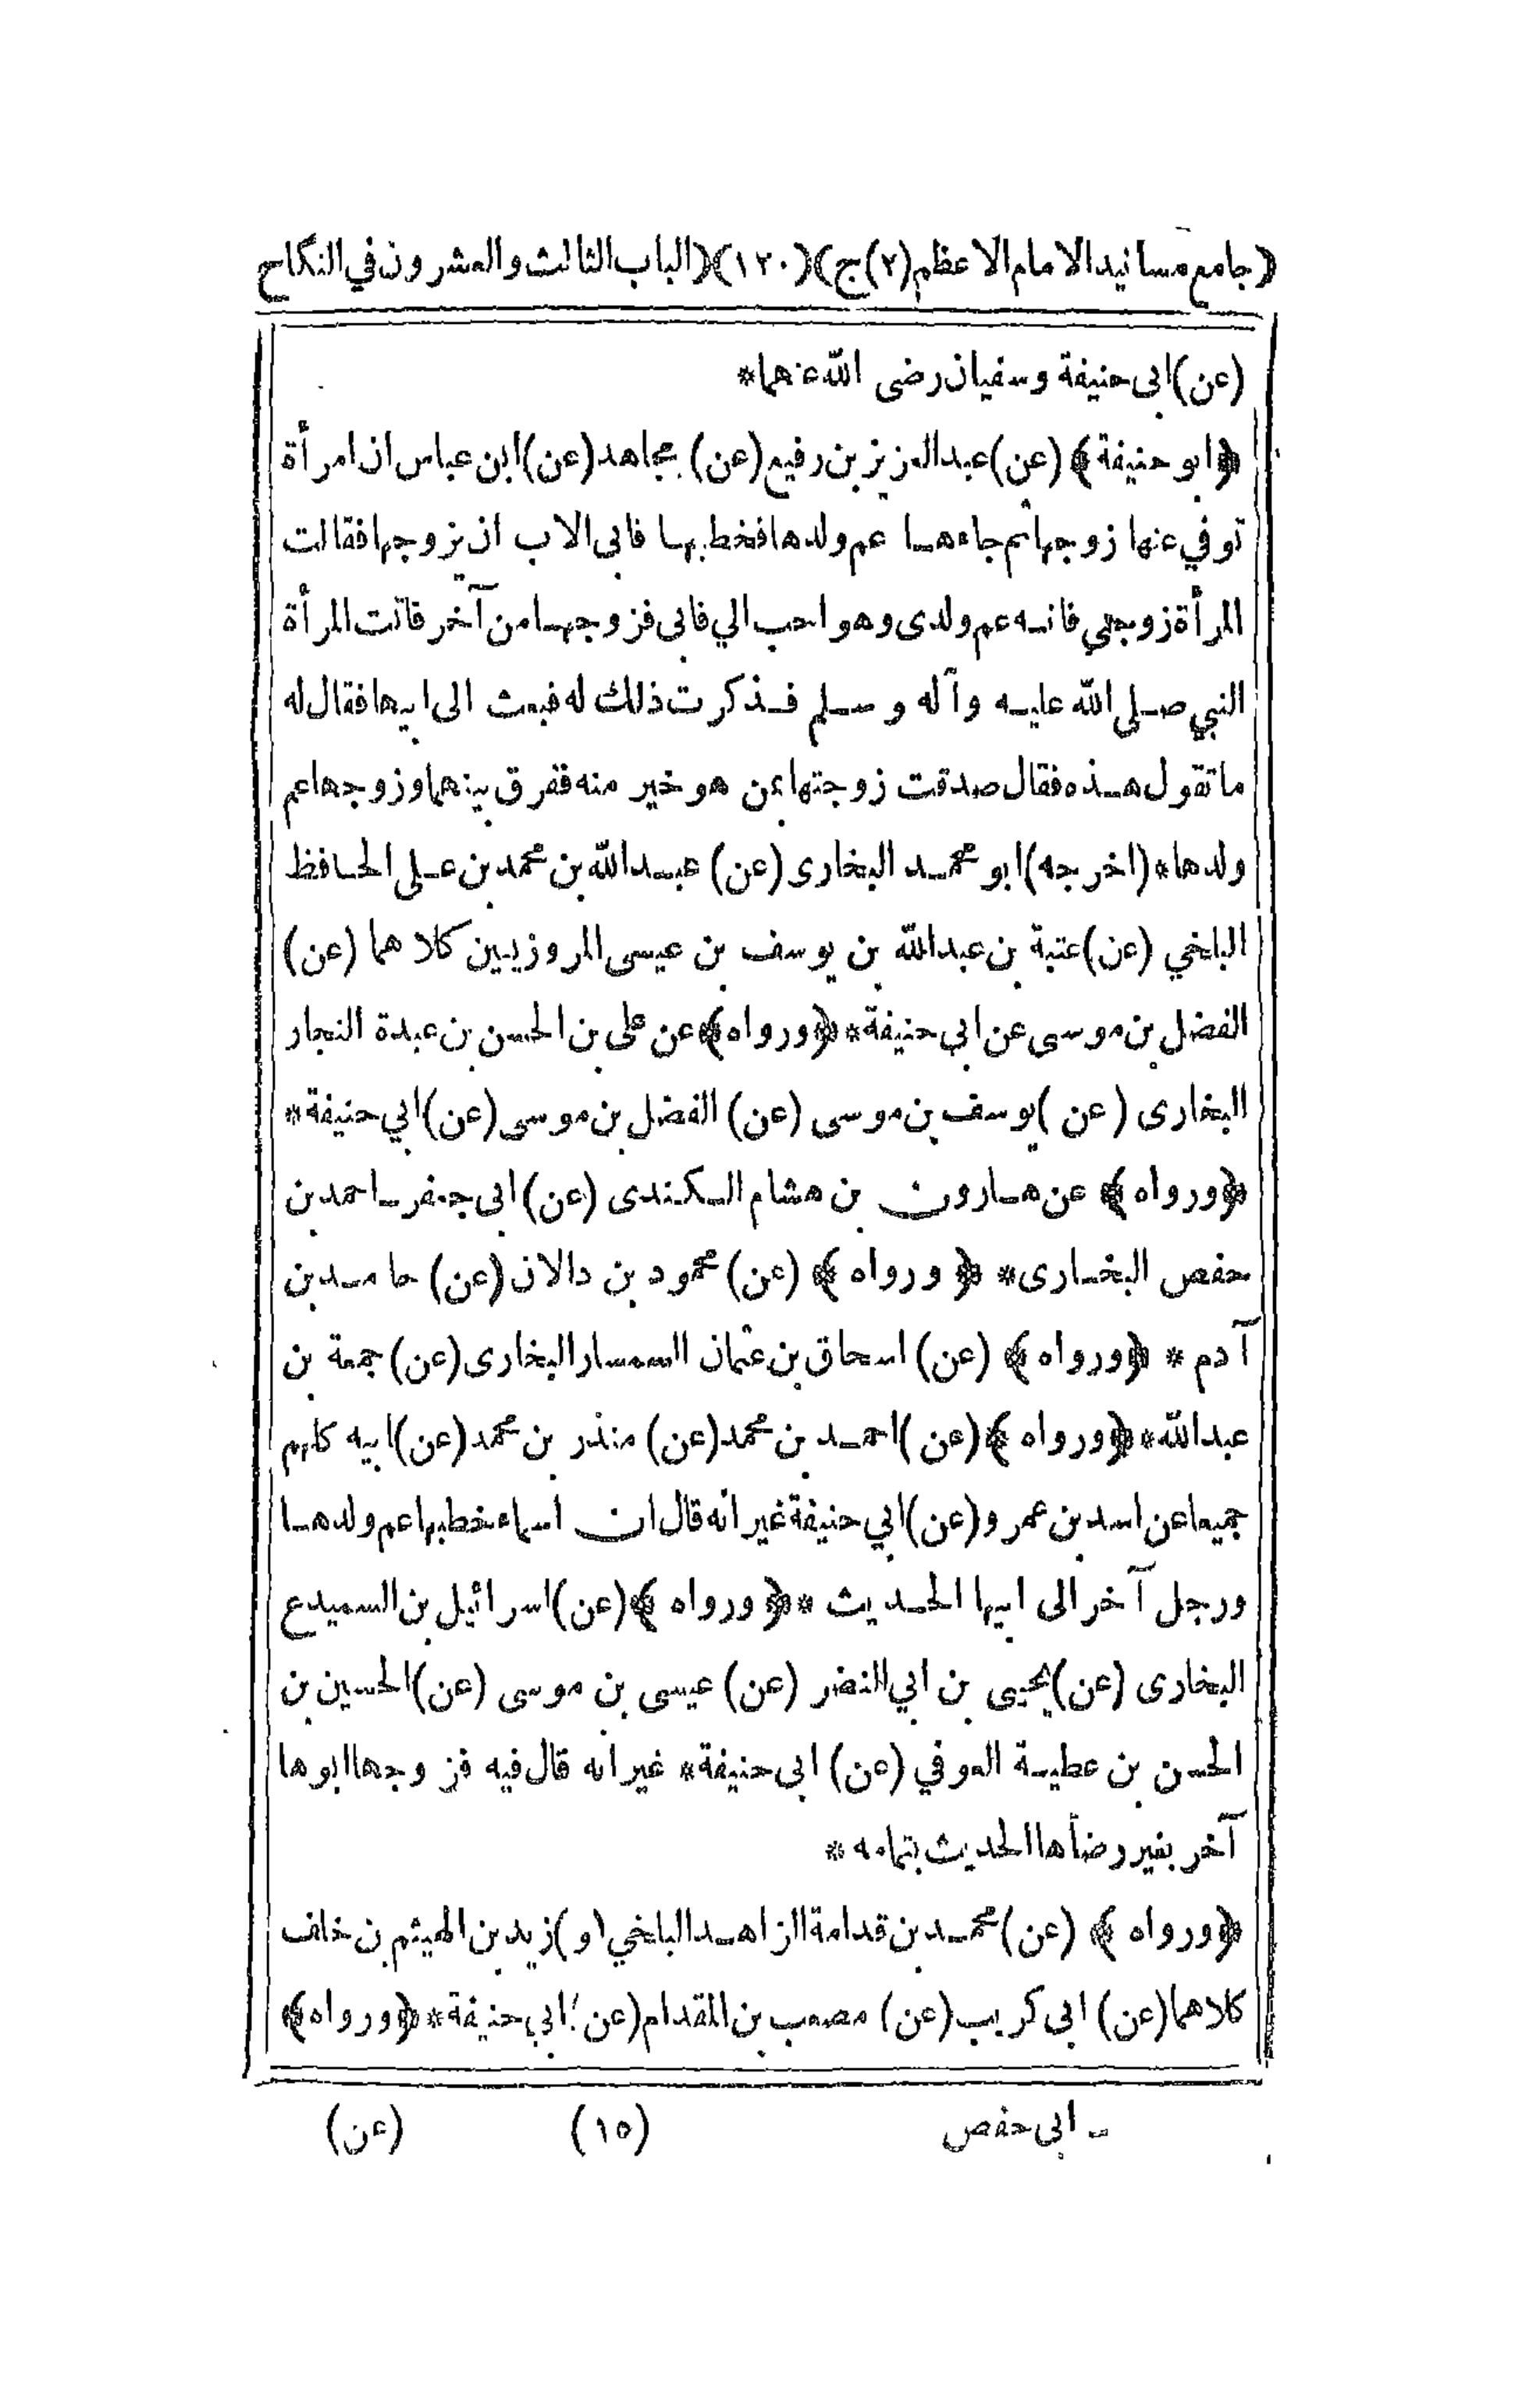 (جامع مسانيد الامام الاعظم (٢) ج) (١٢٠) (الباب الثالث والعشرون في النكاح
(عن) ابى حنيفة وسفيان رضى الله عنهما *
﴿ابو حنيفة﴾ (عن) عبد العزيز بن رفيع (عن) مجاهد (عن) ابن عباس ان امرأة
توفي عنها زوجها ثم جاءها عم ولدها فخطبها فابى الاب ان يزوجها فقالت
المرأة زوجني فانه عم ولدى وهو احب الي فابى فزوجها من آخر فاتت المرأة
النبي صلى الله عليه وآله وسلم فذكرت ذلك له فبعث الى ابيها فقال له
ما تقول هذه فقال صدقت زوجتها ممن هو خير منه ففرق بينهما وزوجها عم
ولدها * (اخرجه) ابو محمد البخارى (عن) عبد الله بن محمد بن على الحافظ
البلخي (عن) عتبة بن عبد الله بن يوسف بن عيسى المروزيين كلاهما (عن)
الفضل بن موسى عن ابي حنيفة * ﴿ورواه﴾ عن على بن الحسن بن عبدة النجار
البخارى (عن) يوسف بن موسى (عن) الفضل بن موسى (عن) ابي حنيفة *
﴿ورواه﴾ عن هارون بن هشام الكندى (عن) ابى جعفر احمد بن
حفص البخارى * ﴿ورواه﴾ (عن) محمود بن دالان (عن) حامد بن
آدم * ﴿ورواه﴾ (عن) اسحاق بن عثمان السمسار البخارى (عن) جمعة بن
عبد الله * ﴿ورواه﴾ (عن) احمد بن محمد (عن) منذر بن محمد (عن) ابيه كلهم
جميعا عن اسد بن عمرو (عن) ابي حنيفة غير انه قال ان اسماء خطبها عم ولدها
ورجل آخر الى ابيها الحديث * ﴿ورواه﴾ (عن) اسرائيل بن السميدع
البخارى (عن) يحيى بن ابي النضر (عن) عيسى بن موسى (عن) الحسين بن
الحسن بن عطية العوفي (عن) ابى حنيفة * غير انه قال فيه فزوجها ابوها
آخر بغير رضاها الحديث بتمامه *
﴿ورواه﴾ (عن) محمد بن قدامة الزاهد البلخي (و) زيد بن الهيثم بن خلف
كلاهما (عن) ابى كريب (عن) مصعب بن المقدام (عن) ابي حنيفة * ﴿ورواه﴾
ـ ابى حفص (١٥) (عن)